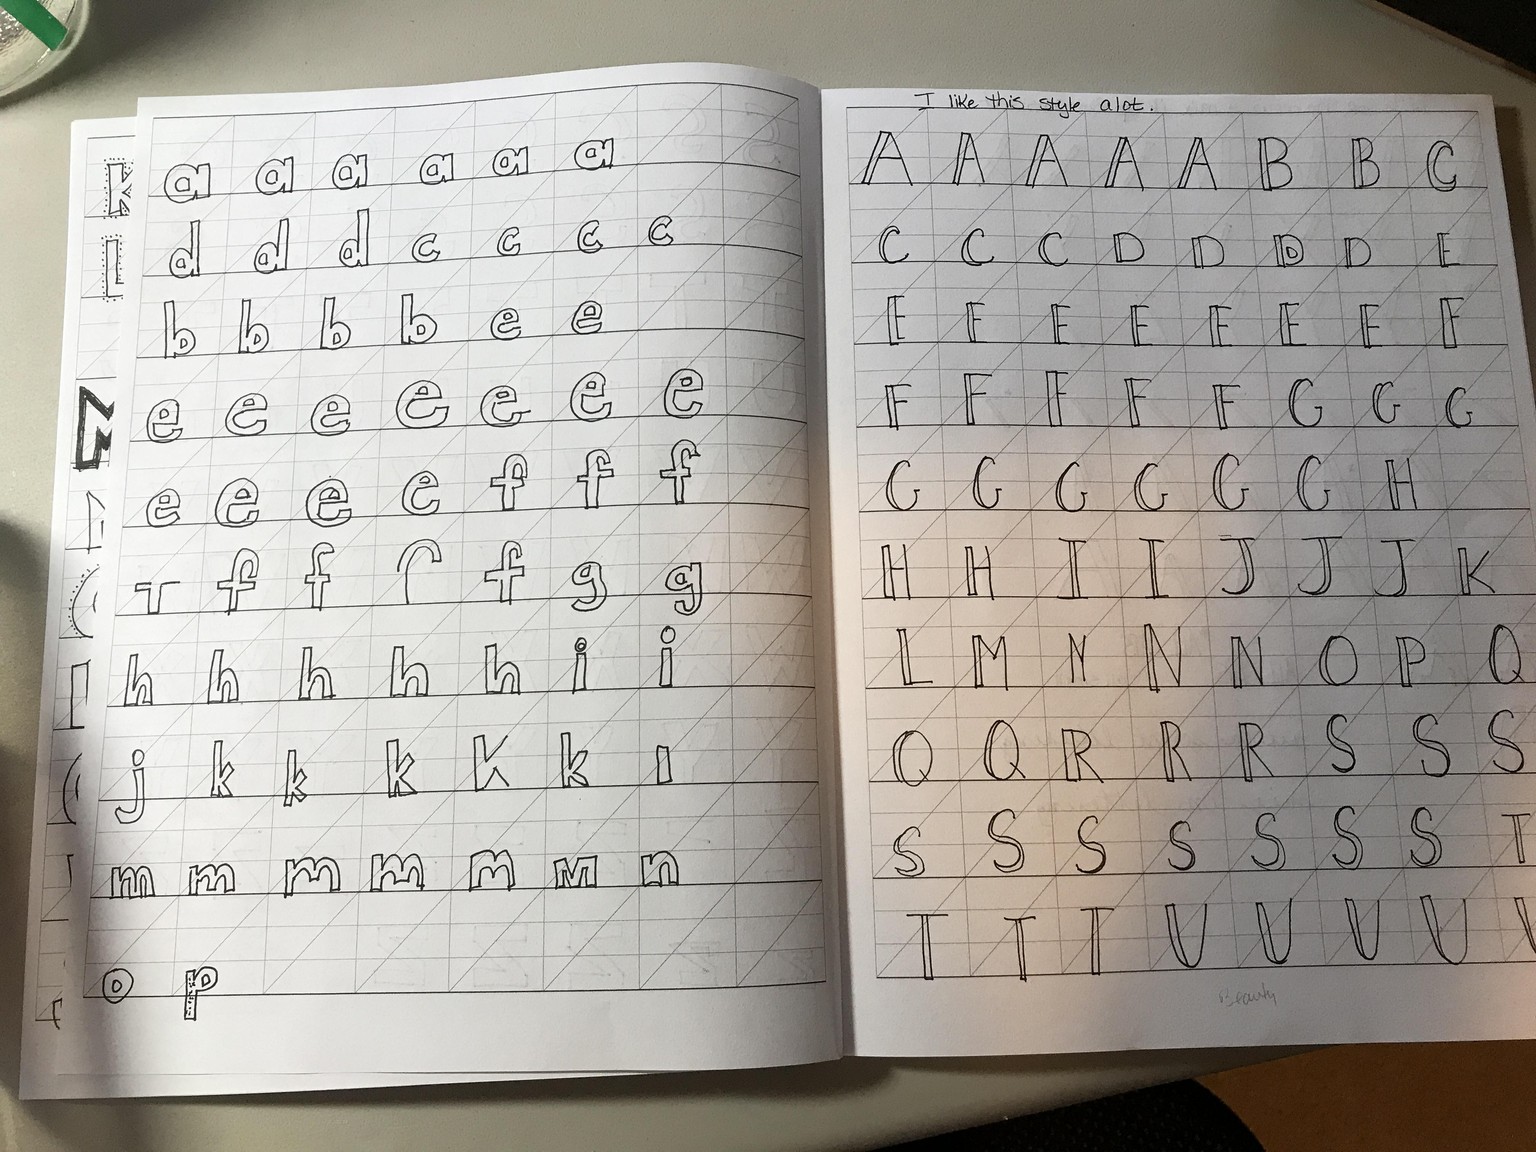 a a a a a a
d d d c c c c
b b b b e e
e e e e e e e
e e e e f f f
f f f f g g
h h h h h i i
j k k k K k l
m m m m m m n
o p
I like this style alot.
A A A A A B B C
C C C D D D D E
E E E E E E E F
F F F F F G G G
G G G G G G H
H H I I J J J K
L M N N N O P Q
Q Q R R R S S S
S S S S S S S T
T T T U U U U
Beauty
K
L
M